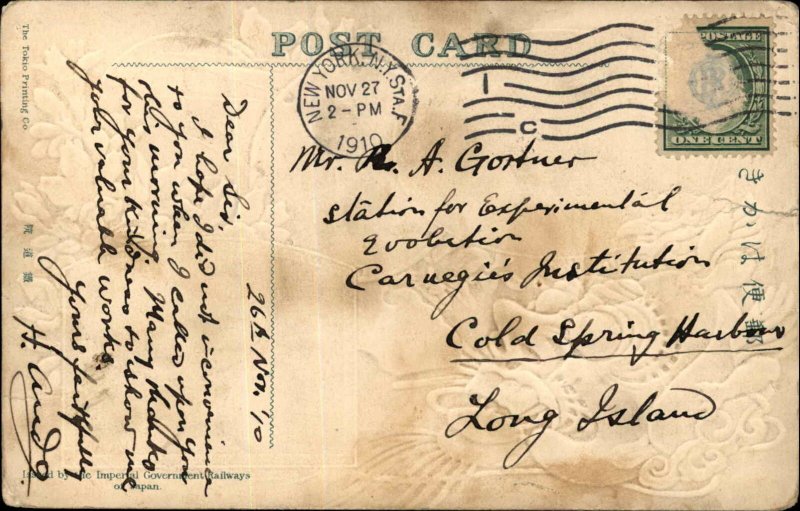 POST CARD
NEW YORK, N.Y. STA. F
NOV 27
2-PM
1910
1
C
POSTAGE
ONE CENT
Mr. R. A. Gortner
Station for Experimental
Evolution
Carnegie's Institution
Cold Spring Harbour
Long Island
26th Nov. '10
Dear Sir,
I hope I did not inconvenience
to you when I called upon you
this morning. Many thanks
for your kindness to show me
your valuable works.
Yours faithfully
H. Ando
The Tokio Printing Co
鐵道院
きかは便郵
Issued by the Imperial Government Railways
of Japan.